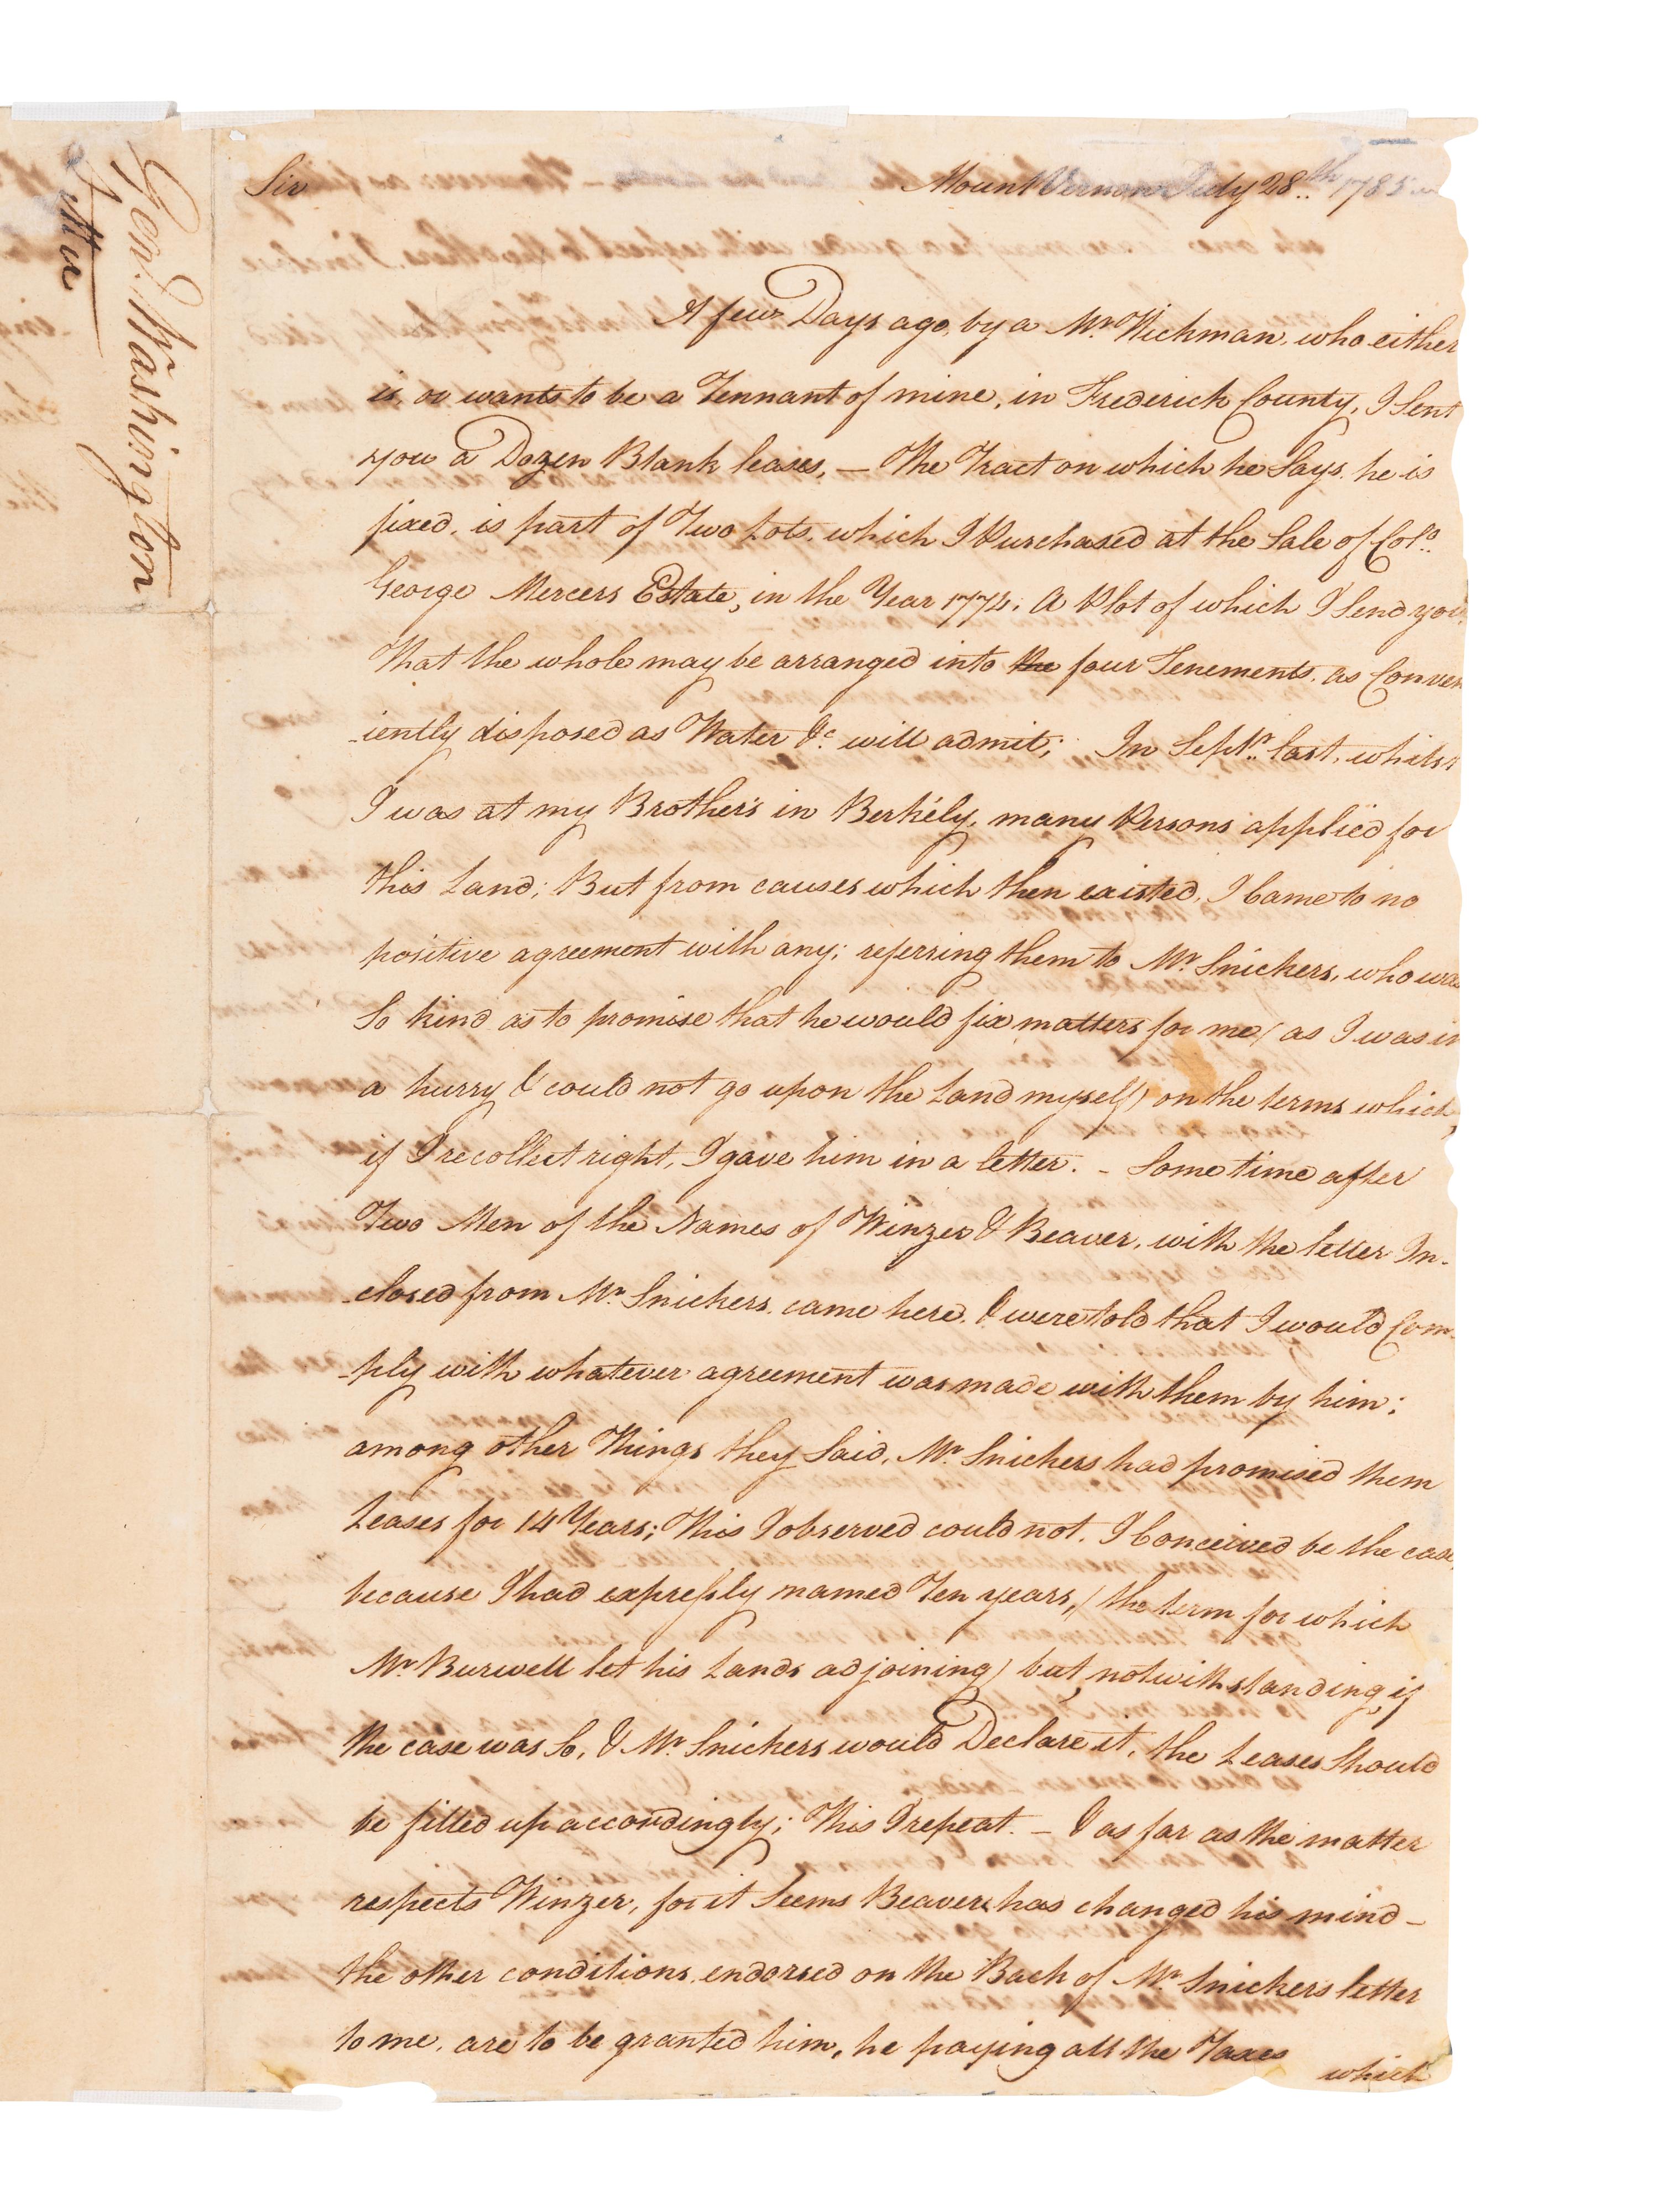 Genl. Washington
Letter
Sir
Mount Vernon July 28th. 1785
A few Days ago, by a Mr. Wickman, who either
is, or wants to be a Tennant of mine, in Frederick County, I Sent
you a Dozen Blank leases, — The Tract on which he Says, he is
fixed, is part of Two Lots, which I Purchased at the Sale of Colo.
George Mercers Estate, in the Year 1774; A Plot of which I Send you,
That the whole may be arranged into the four Tenements, as Conven
-iently disposed as Water &c. will admit; In Septr. last, whilst
I was at my Brother's in Berkély, many Persons applied for
this Land; But from causes which then existed, I Came to no
positive agreement with any; referring them to Mr. Snickers, who was
So kind as to promise that he would fix matters for me (as I was in
a hurry & could not go upon the Land myself) on the terms which,
if I recollect right, I gave him in a letter. - Some time after
Two Men of the Names of Winzer & Beaver, with the letter In-
-closed from Mr. Snickers, came here, & were told that I would Com-
-ply with whatever agreement was made with them by him;
among other Things they Said, Mr. Snickers had promised them
Leases for 14 Years; This I observed could not, I Conceived be the case,
because I had expressly named Ten years, (the term for which
Mr. Burwell let his Lands adjoining) but, notwithstanding, if
the case was So, & Mr. Snickers would Declare it, the Leases Should
be filled up accordingly; This I repeat. — & as far as the matter
respects Winzer, for it Seems Beaver has changed his mind —
the other conditions, endorsed on the Back of Mr. Snickers letter
to me, are to be granted him, he paying all the Taxes
which